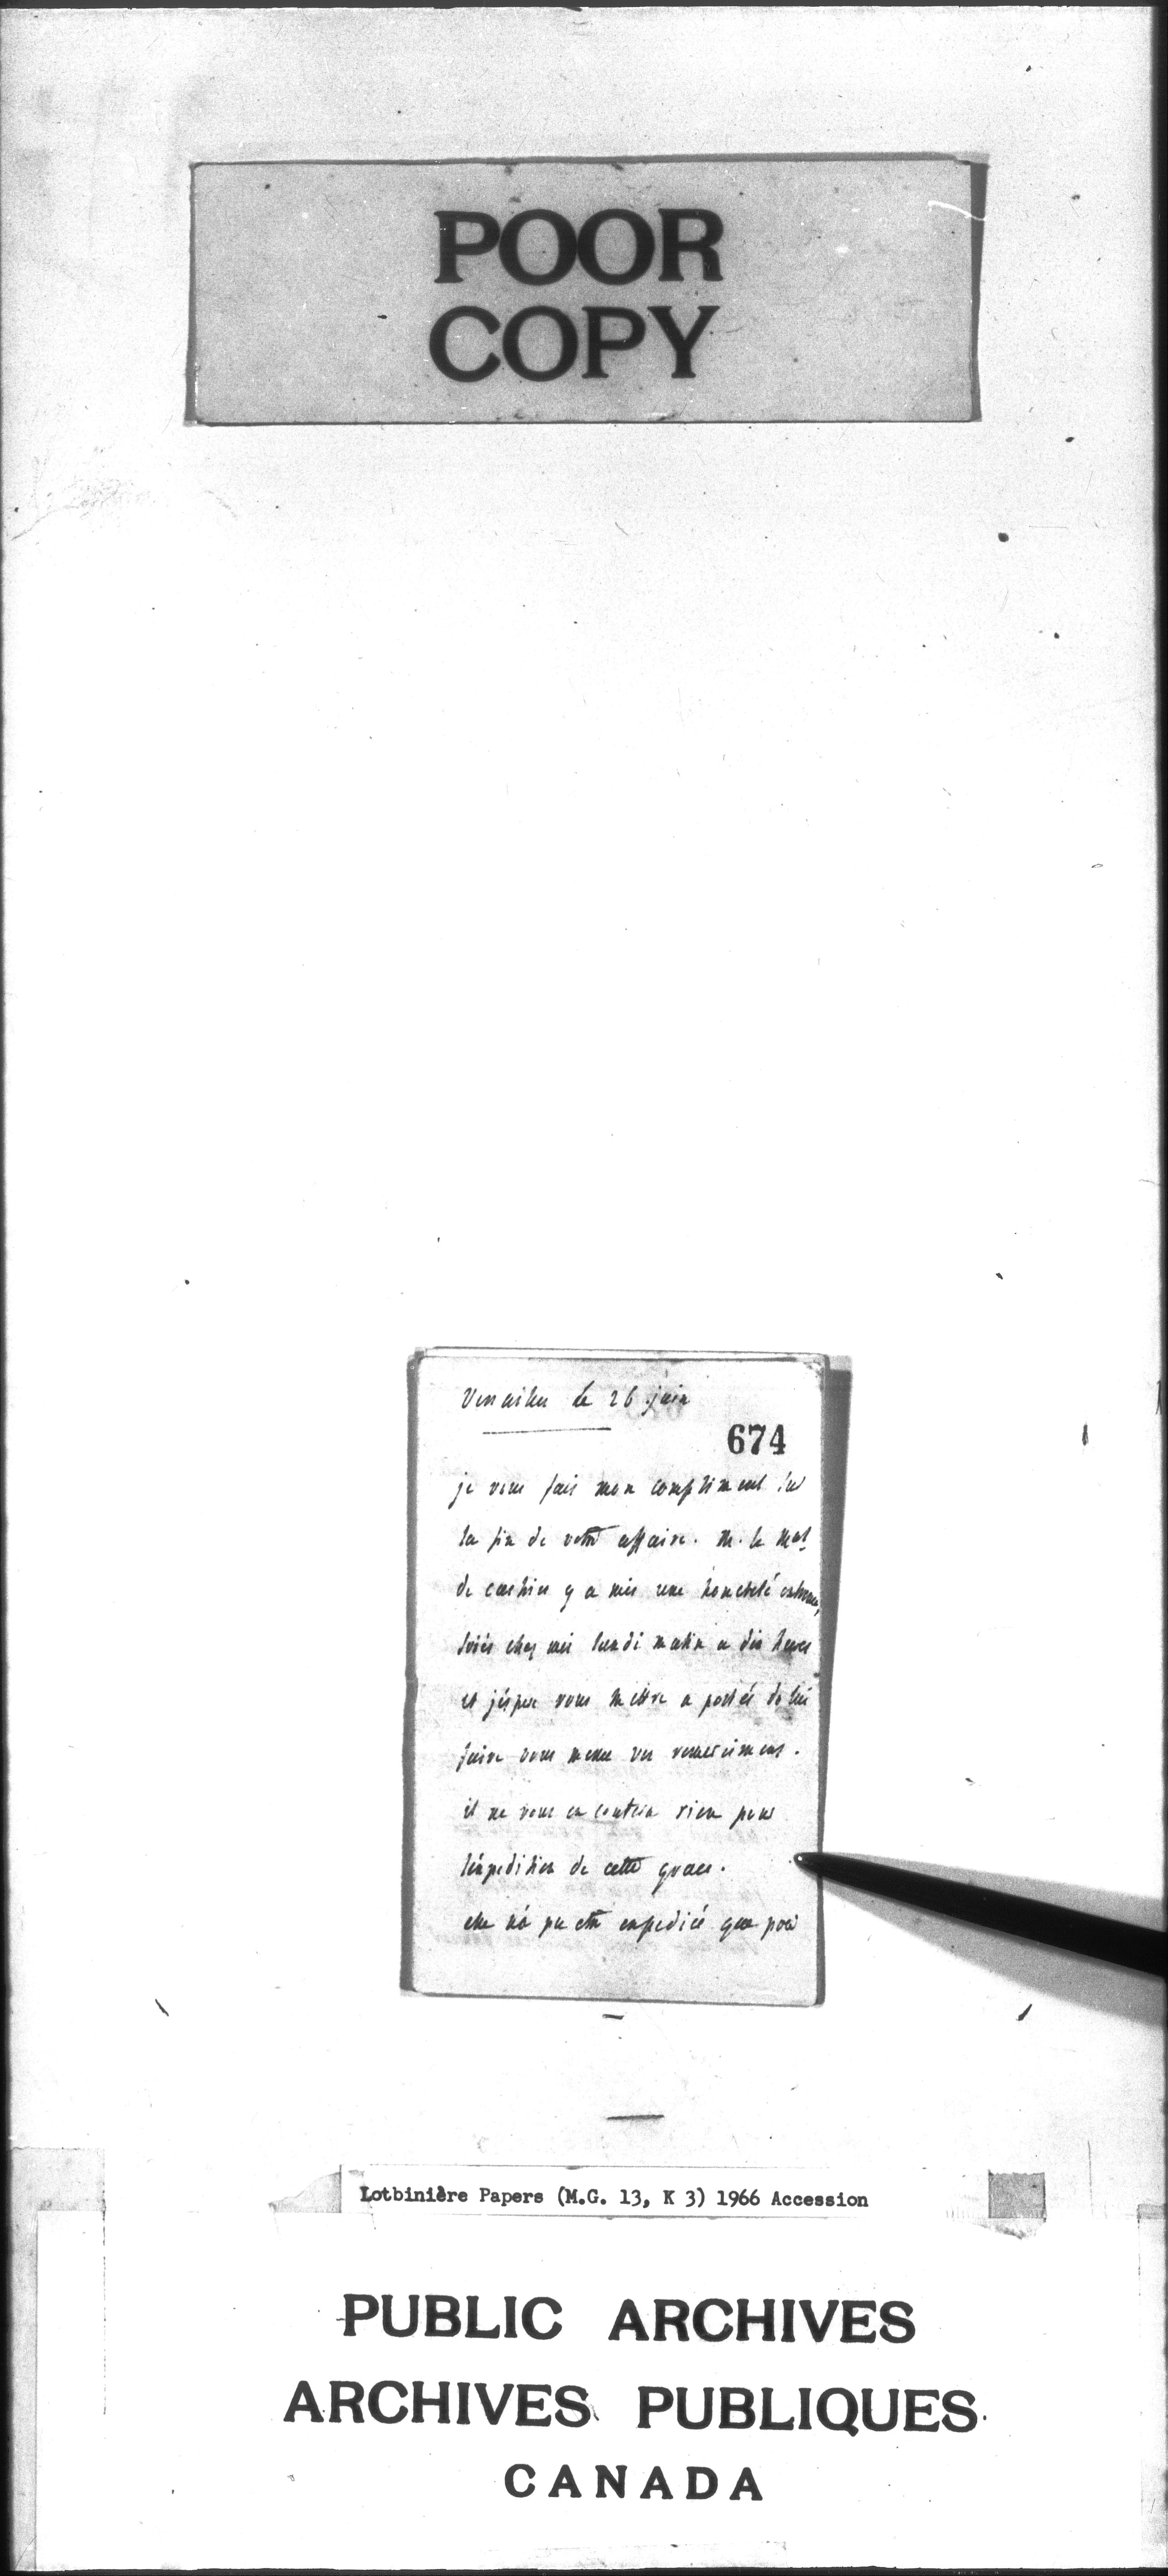 POOR
COPY
Versailles le 26 juin
674
je vous fais mon compliment sur
la fin de votre affaire. M. le Mal
de castries y a mis une honeteté extreme,
soiés chez moi lundi matin a dix heures
et j'éspere vous mettre a portée de lui
faire vous meme vos remerciemens.
il ne vous en coutera rien pour
l'éxpedition de cette grace.
elle n'a pu etre expediée que pour
Lotbinière Papers (M.G. 13, K 3) 1966 Accession
PUBLIC ARCHIVES
ARCHIVES PUBLIQUES
CANADA